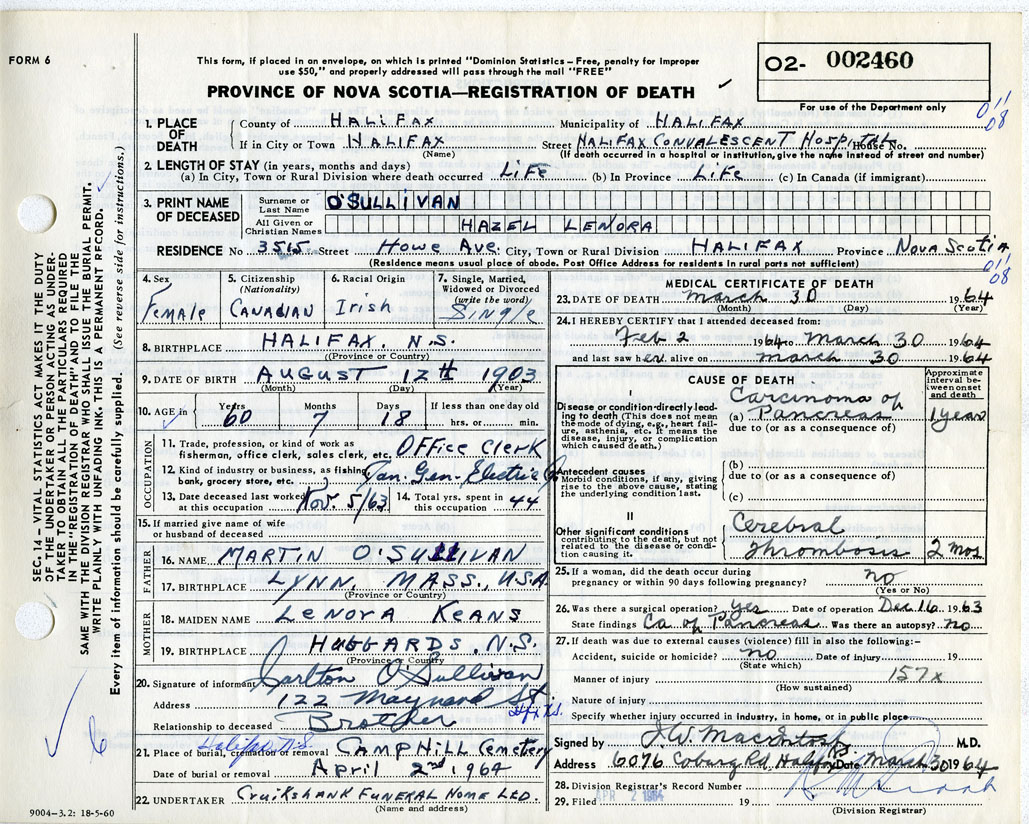 FORM 6
This form, if placed in an envelope, on which is printed "Dominion Statistics – Free, penalty for improper
use $50," and properly addressed will pass through the mail "FREE"
PROVINCE OF NOVA SCOTIA—REGISTRATION OF DEATH
O2- 002460
For use of the Department only
011
08
SEC. 14 – VITAL STATISTICS ACT MAKES IT THE DUTY
OF THE UNDERTAKER OR PERSON ACTING AS UNDER-
TAKER TO OBTAIN ALL THE PARTICULARS REQUIRED
IN THE "REGISTRATION OF DEATH" AND TO FILE THE
SAME WITH THE DIVISION REGISTRAR WHO SHALL ISSUE THE BURIAL PERMIT.
WRITE PLAINLY WITH UNFADING INK. THIS IS A PERMANENT RECORD.
Every item of information should be carefully supplied. (See reverse side for instructions.)
1. PLACE OF DEATH
County of HALIFAX Municipality of HALIFAX
If in City or Town HALIFAX (Name) Street HALIFAX CONVALESCENT Hospital House No.
(If death occurred in a hospital or institution, give the name instead of street and number)
2. LENGTH OF STAY (in years, months and days)
(a) In City, Town or Rural Division where death occurred LIFE (b) In Province LIFE (c) In Canada (if immigrant)
3. PRINT NAME OF DECEASED
Surname or Last Name O'SULLIVAN
All Given or Christian Names HAZEL LENORA
RESIDENCE No 3515 Street Howe Ave. City, Town or Rural Division HALIFAX Province NOVA SCOTIA
(Residence means usual place of abode. Post Office Address for residents in rural parts not sufficient)
011
08
4. Sex Female
5. Citizenship (Nationality) CANADIAN
6. Racial Origin Irish
7. Single, Married, Widowed or Divorced (write the word) Single
8. BIRTHPLACE HALIFAX, N.S.
(Province or Country)
9. DATE OF BIRTH AUGUST 12th 1903
(Month) (Day) (Year)
10. AGE in Years 60 Months 7 Days 18 If less than one day old hrs. or min.
OCCUPATION
11. Trade, profession, or kind of work as fisherman, office clerk, sales clerk, etc. OFFICE CLERK
12. Kind of industry or business, as fishing, bank, grocery store, etc. Can. Gen. Electric Co
13. Date deceased last worked at this occupation Nov. 5/63 14. Total yrs. spent in this occupation 44
15. If married give name of wife or husband of deceased
FATHER
16. NAME MARTIN O'SULLIVAN
17. BIRTHPLACE LYNN, MASS., U.S.A
(Province or Country)
MOTHER
18. MAIDEN NAME LENORA KEANS
19. BIRTHPLACE HUBBARDS, N.S.
(Province or Country)
20. Signature of informant Carlton O'Sullivan
Address 122 Maynard St. Hfx N.S.
Relationship to deceased Brother
21. Place of burial, cremation or removal Halifax N.S. CAMP HILL Cemetery
Date of burial or removal April 2nd, 1964
22. UNDERTAKER Cruikshank FUNERAL HOME LTD.
(Name and address)
9004-3.2: 18-5-60
MEDICAL CERTIFICATE OF DEATH
23. DATE OF DEATH March 30 1964
(Month) (Day) (Year)
24. I HEREBY CERTIFY that I attended deceased from:
Feb 2 1964 to March 30 1964
and last saw her alive on March 30 1964
CAUSE OF DEATH
Approximate interval between onset and death
I
Disease or condition directly leading to death (This does not mean the mode of dying, e.g., heart failure, asthenia, etc. It means the disease, injury, or complication which caused death.)
(a) Carcinoma of Pancreas 1 year
due to (or as a consequence of)
Antecedent causes
Morbid conditions, if any, giving rise to the above cause, stating the underlying condition last.
(b)
due to (or as a consequence of)
(c)
II
Other significant conditions contributing to the death, but not related to the disease or condition causing it.
Cerebral Thrombosis 2 mos
25. If a woman, did the death occur during pregnancy or within 90 days following pregnancy? no
(Yes or No)
26. Was there a surgical operation? yes Date of operation Dec 16 1963
State findings Ca. of Pancreas Was there an autopsy? no
27. If death was due to external causes (violence) fill in also the following:–
Accident, suicide or homicide? no Date of injury 19
(State which)
Manner of injury 157x
(How sustained)
Nature of injury
Specify whether injury occurred in industry, in home, or in public place
Signed by J.W. Macintosh M.D.
Address 6096 Coburg Rd, Halifax Date March 30 1964
28. Division Registrar's Record Number
29. Filed APR 2 1964 19
(Division Registrar)